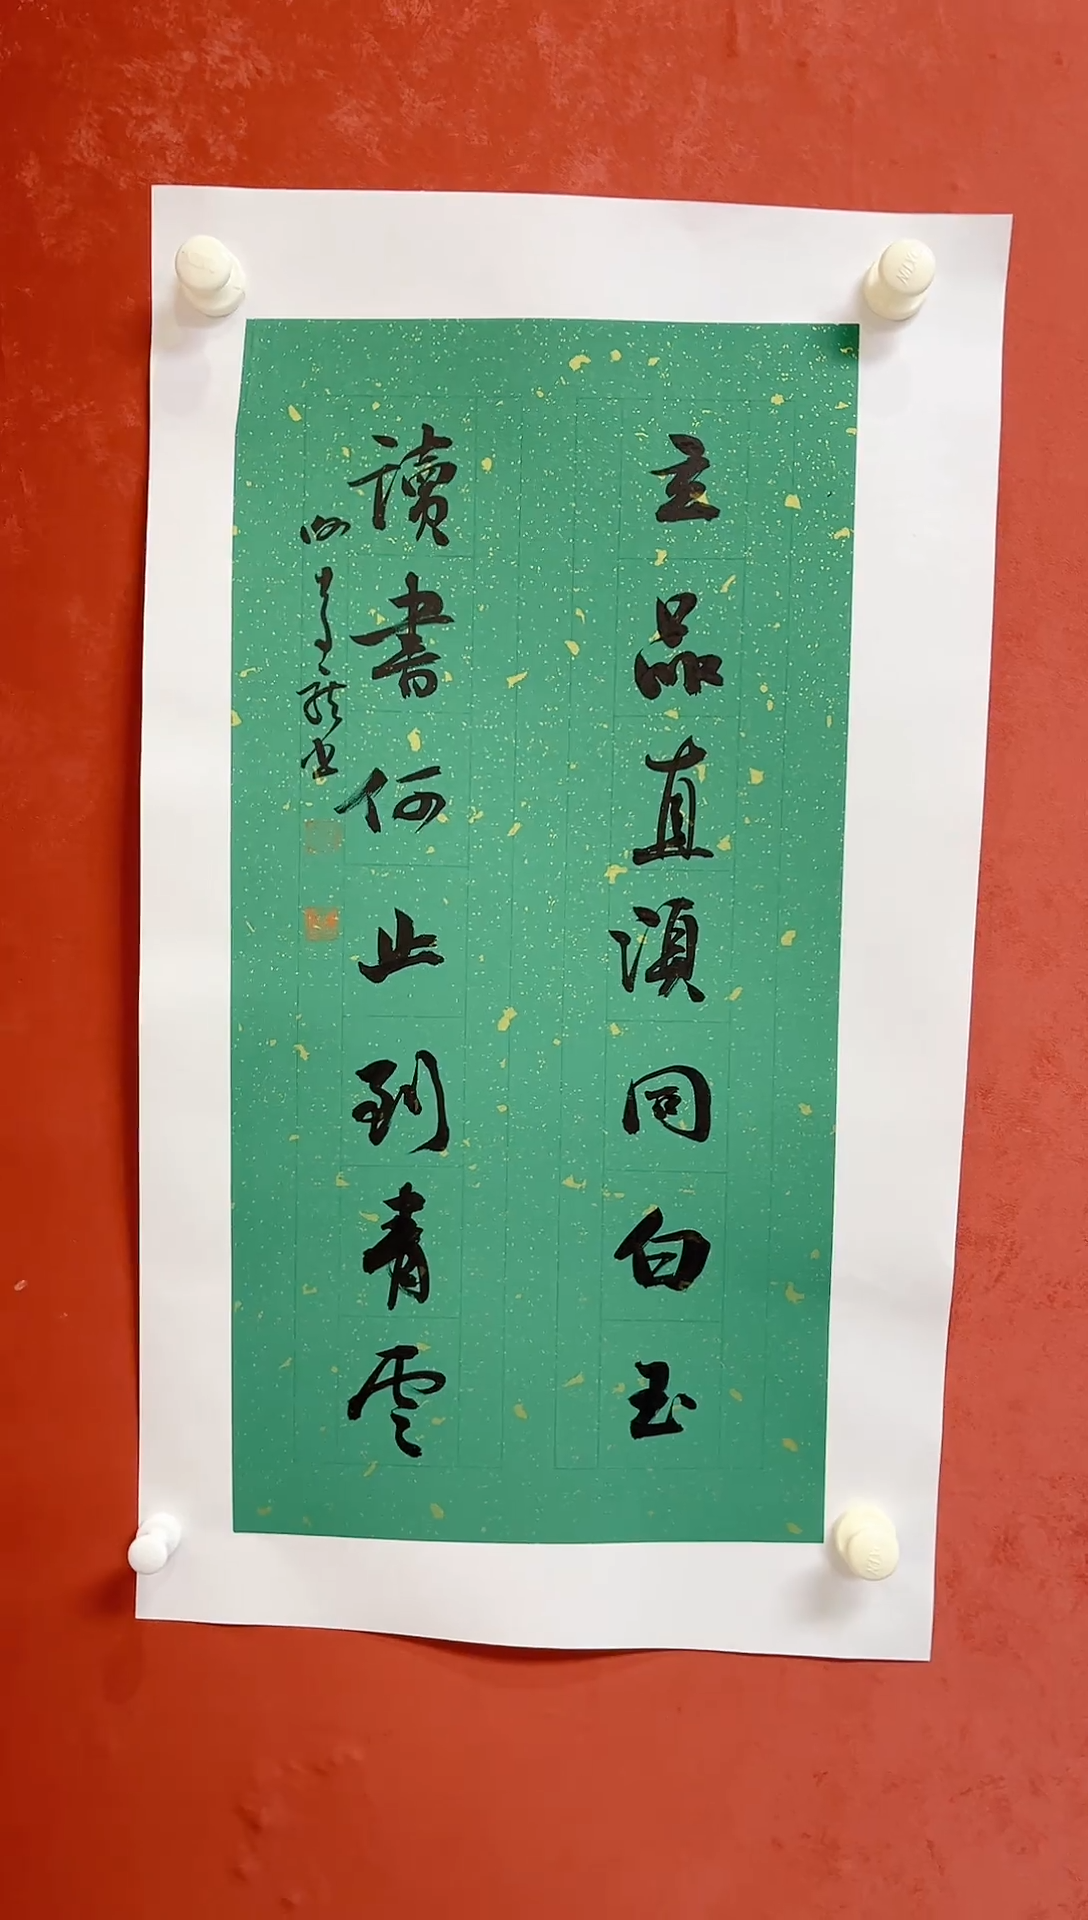 立品直須同白玉
讀書何止到青雲